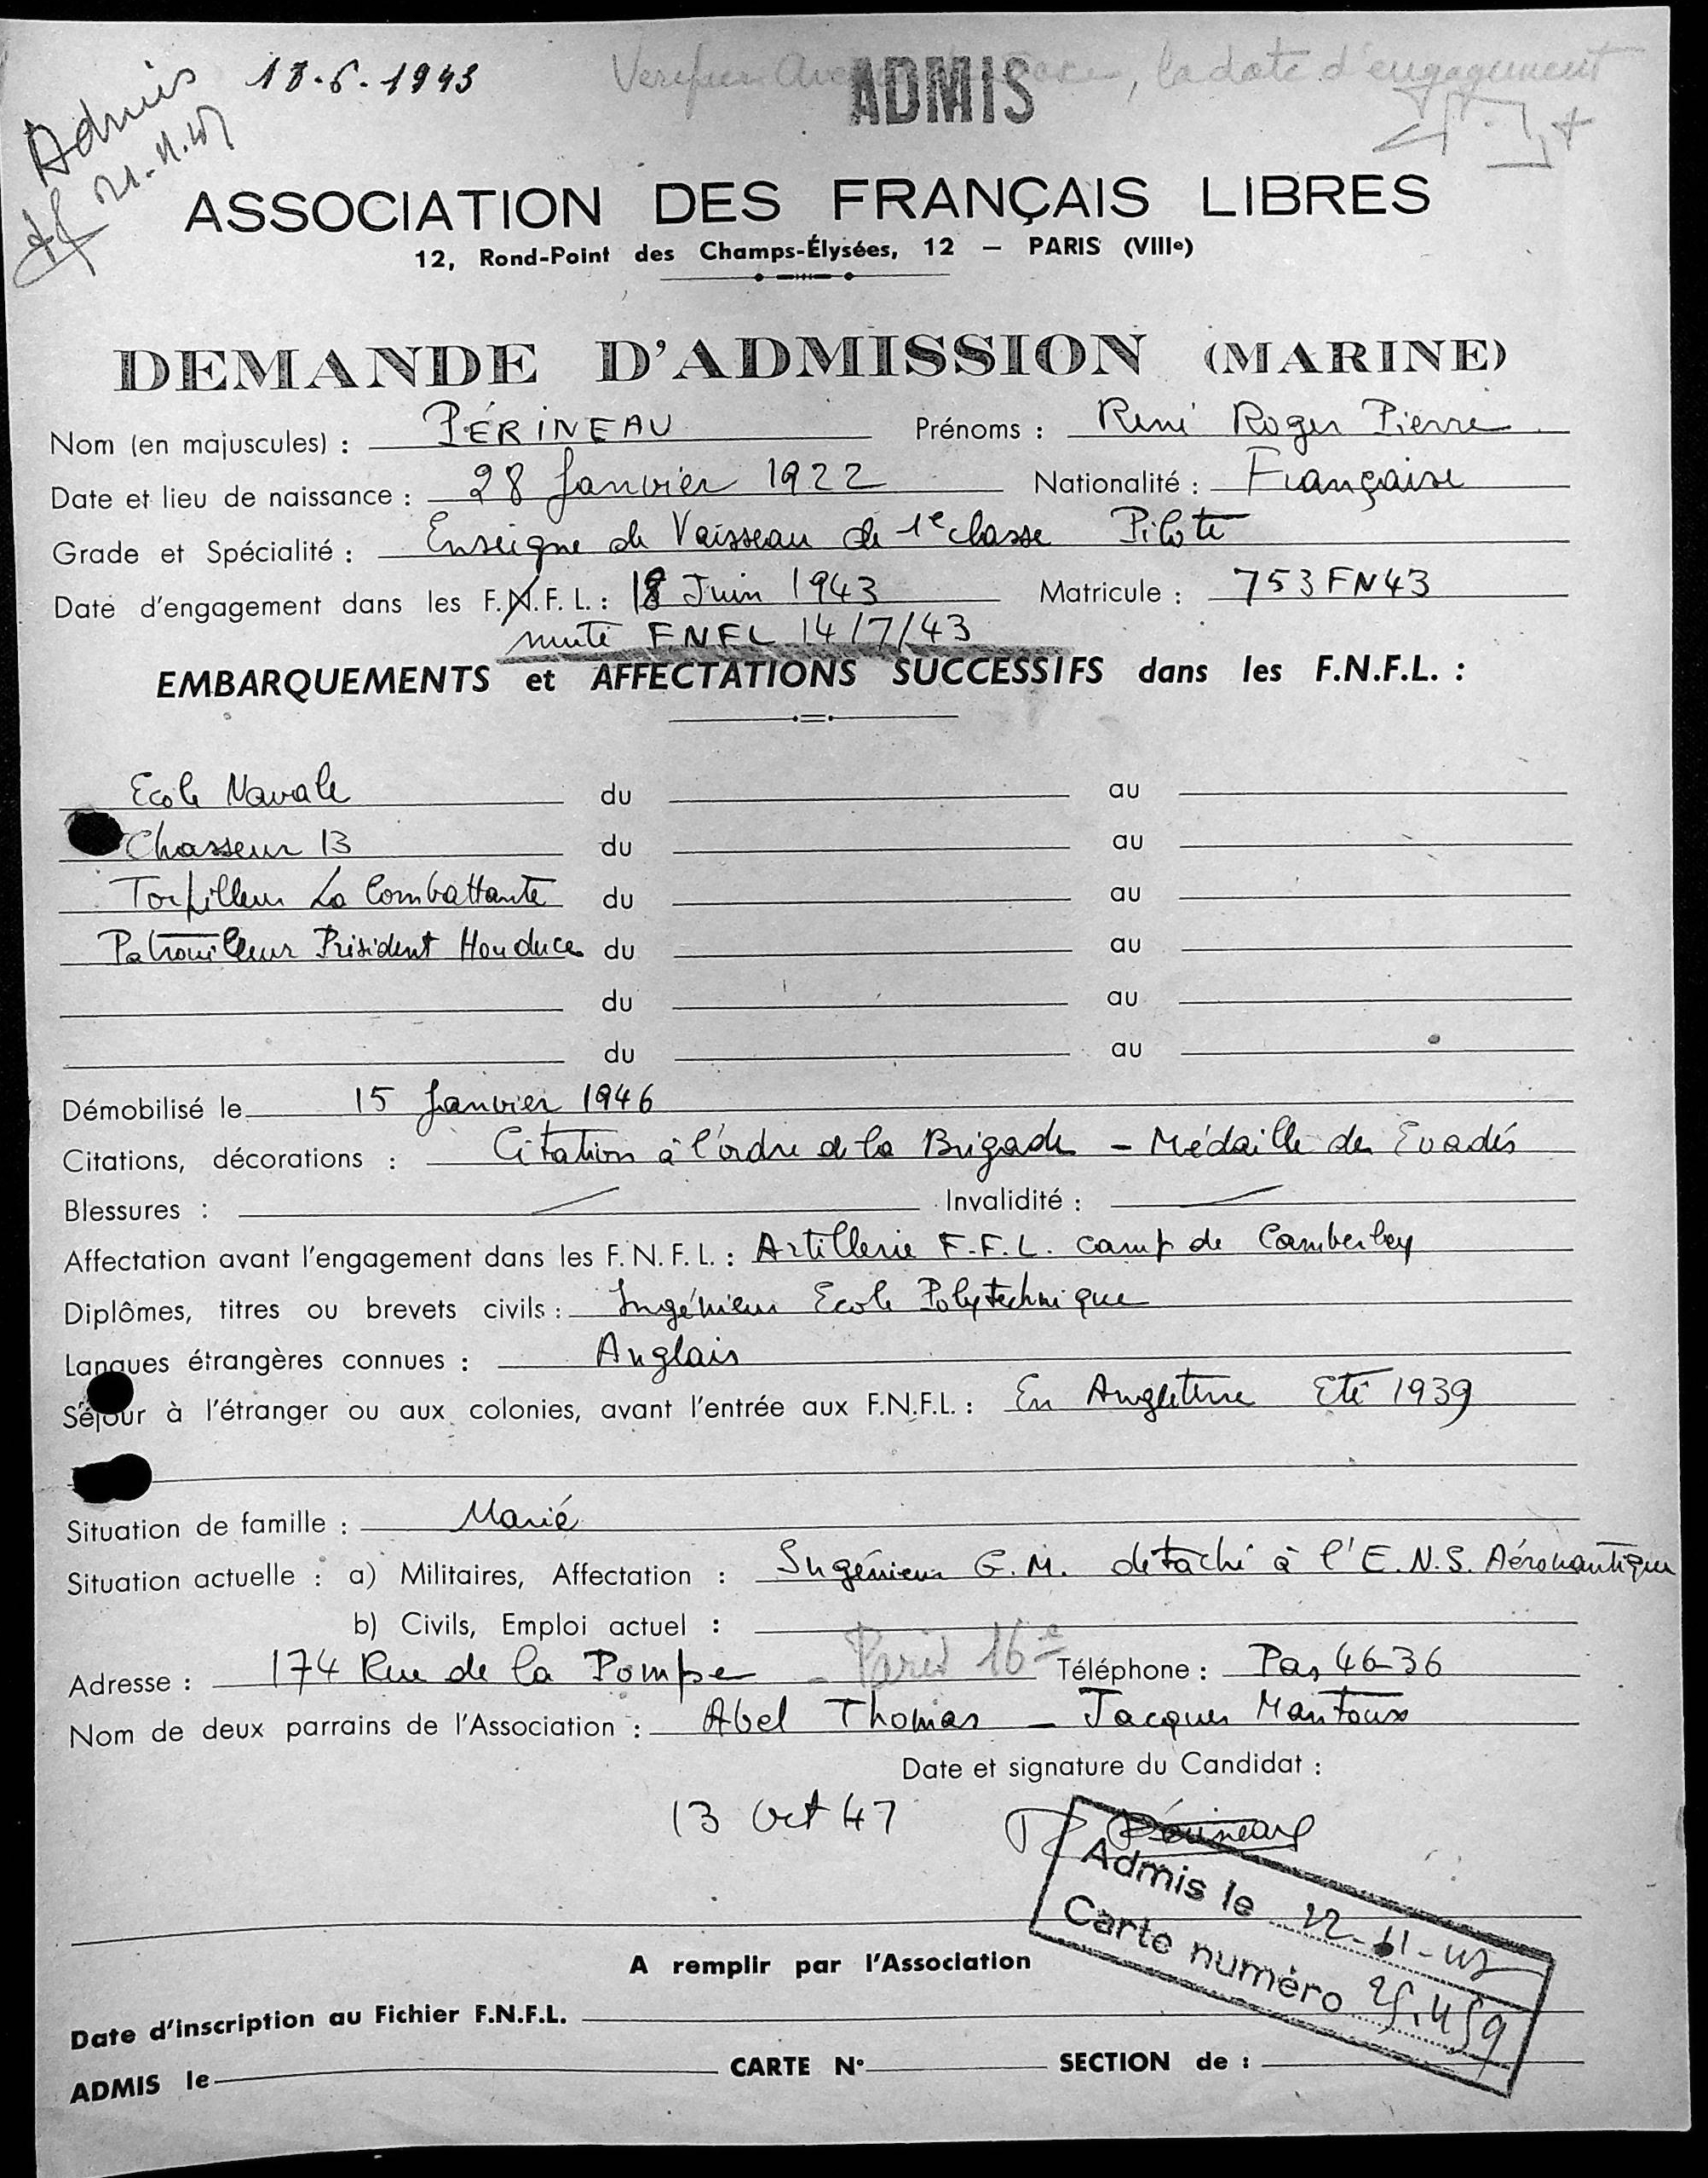 Admis 18-6-1943 Verifier la date d'engagement
21.11.47 ADMIS
ASSOCIATION DES FRANÇAIS LIBRES
12, Rond-Point des Champs-Élysées, 12 — PARIS (VIIIe)
DEMANDE D'ADMISSION (MARINE)
Nom (en majuscules) : PÉRINEAU Prénoms : René Roger Pierre
Date et lieu de naissance : 28 Janvier 1922 Nationalité : Française
Grade et Spécialité : Enseigne de Vaisseau de 1e classe Pilote
Date d'engagement dans les F.N.F.L. : 18 Juin 1943 Matricule : 753 FN43
muté FNFL 14/7/43
EMBARQUEMENTS et AFFECTATIONS SUCCESSIFS dans les F.N.F.L. :
Ecole Navale du au
Chasseur 13 du au
Torpilleur La Combattante du au
Patrouilleur Président Houduce du au
du au
du au
Démobilisé le 15 Janvier 1946
Citations, décorations : Citation à l'ordre de la Brigade - Médaille des Evadés
Blessures : Invalidité :
Affectation avant l'engagement dans les F.N.F.L. : Artillerie F.F.L. camp de Camberley
Diplômes, titres ou brevets civils : Ingénieur Ecole Polytechnique
Langues étrangères connues : Anglais
Séjour à l'étranger ou aux colonies, avant l'entrée aux F.N.F.L. : En Angleterre Eté 1939
Situation de famille : Marié
Situation actuelle : a) Militaires, Affectation : Ingénieur G.M. détaché à l'E.N.S. Aéronautique
b) Civils, Emploi actuel :
Adresse : 174 Rue de la Pompe - Paris 16e Téléphone : Pas 46-36
Nom de deux parrains de l'Association : Abel Thomas - Jacques Mantoux
Date et signature du Candidat :
13 Oct 47 Périneau
Admis le 22-11-47
Carte numéro 25.459
A remplir par l'Association
Date d'inscription au Fichier F.N.F.L.
ADMIS le CARTE N° SECTION de :